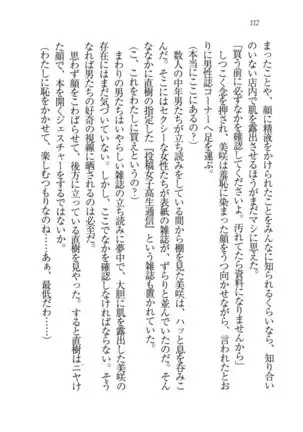 112
まったことや、顔に精液をかけられたことをみんなに知られるくらいなら、知り合い
のいない店内で肌を露出させるほうがまだマシに思えた。
「買う前に必ずなかを確認してくださいよ。汚れてたら資料になりませんから」
しつこく念を押され、美咲は羞恥に染まった顔をうつ向かせながら、言われたとお
りに男性誌コーナーへ足を運ぶ。
(本当にここにあるの?)
数人の中年男たちが立ち読みをしている間から棚を見た美咲は、ハッと息を呑みこ
んだ。そこにはセクシーな女性たちが表紙の雑誌が、ずらりと並んでいたのだ。そん
ななかに直樹の指定した『投稿女子高生通信』という雑誌も置かれていた。
(こ、これをわたしに買えというの?)
まわりの男たちはいやらしい雑誌の立ち読みに夢中で、大胆に肌を露出した美咲の
存在にはまだ気づいていない。しかし、ここでなかを確認しなければならないとなる
となれば男たちの好奇の視線に晒されるのは必至だ。
思わず顔を曇らせて、後方に立っている直樹を見やった。すると直樹はニヤけ
た顔で、本を開くジェスチャーをするではないか。
(わたしに恥をかかせて、楽しむつもりなのね……あぁ、最低だわ……)